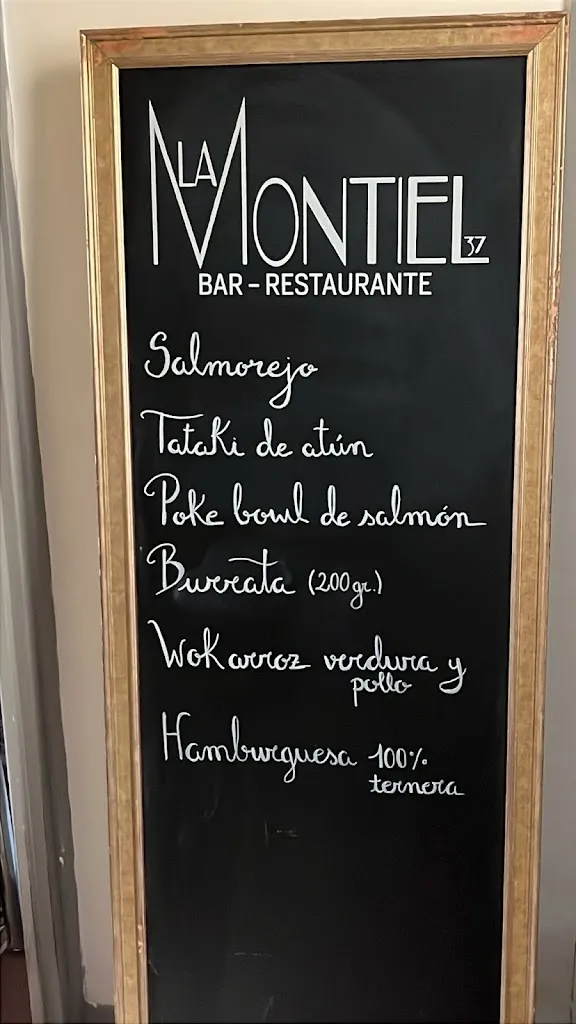 LA
MONTIEL 37
BAR - RESTAURANTE
Salmorejo
Tataki de atún
Poke bowl de salmón
Burrata (200gr.)
Wok arroz verdura y
pollo
Hamburguesa 100%
ternera